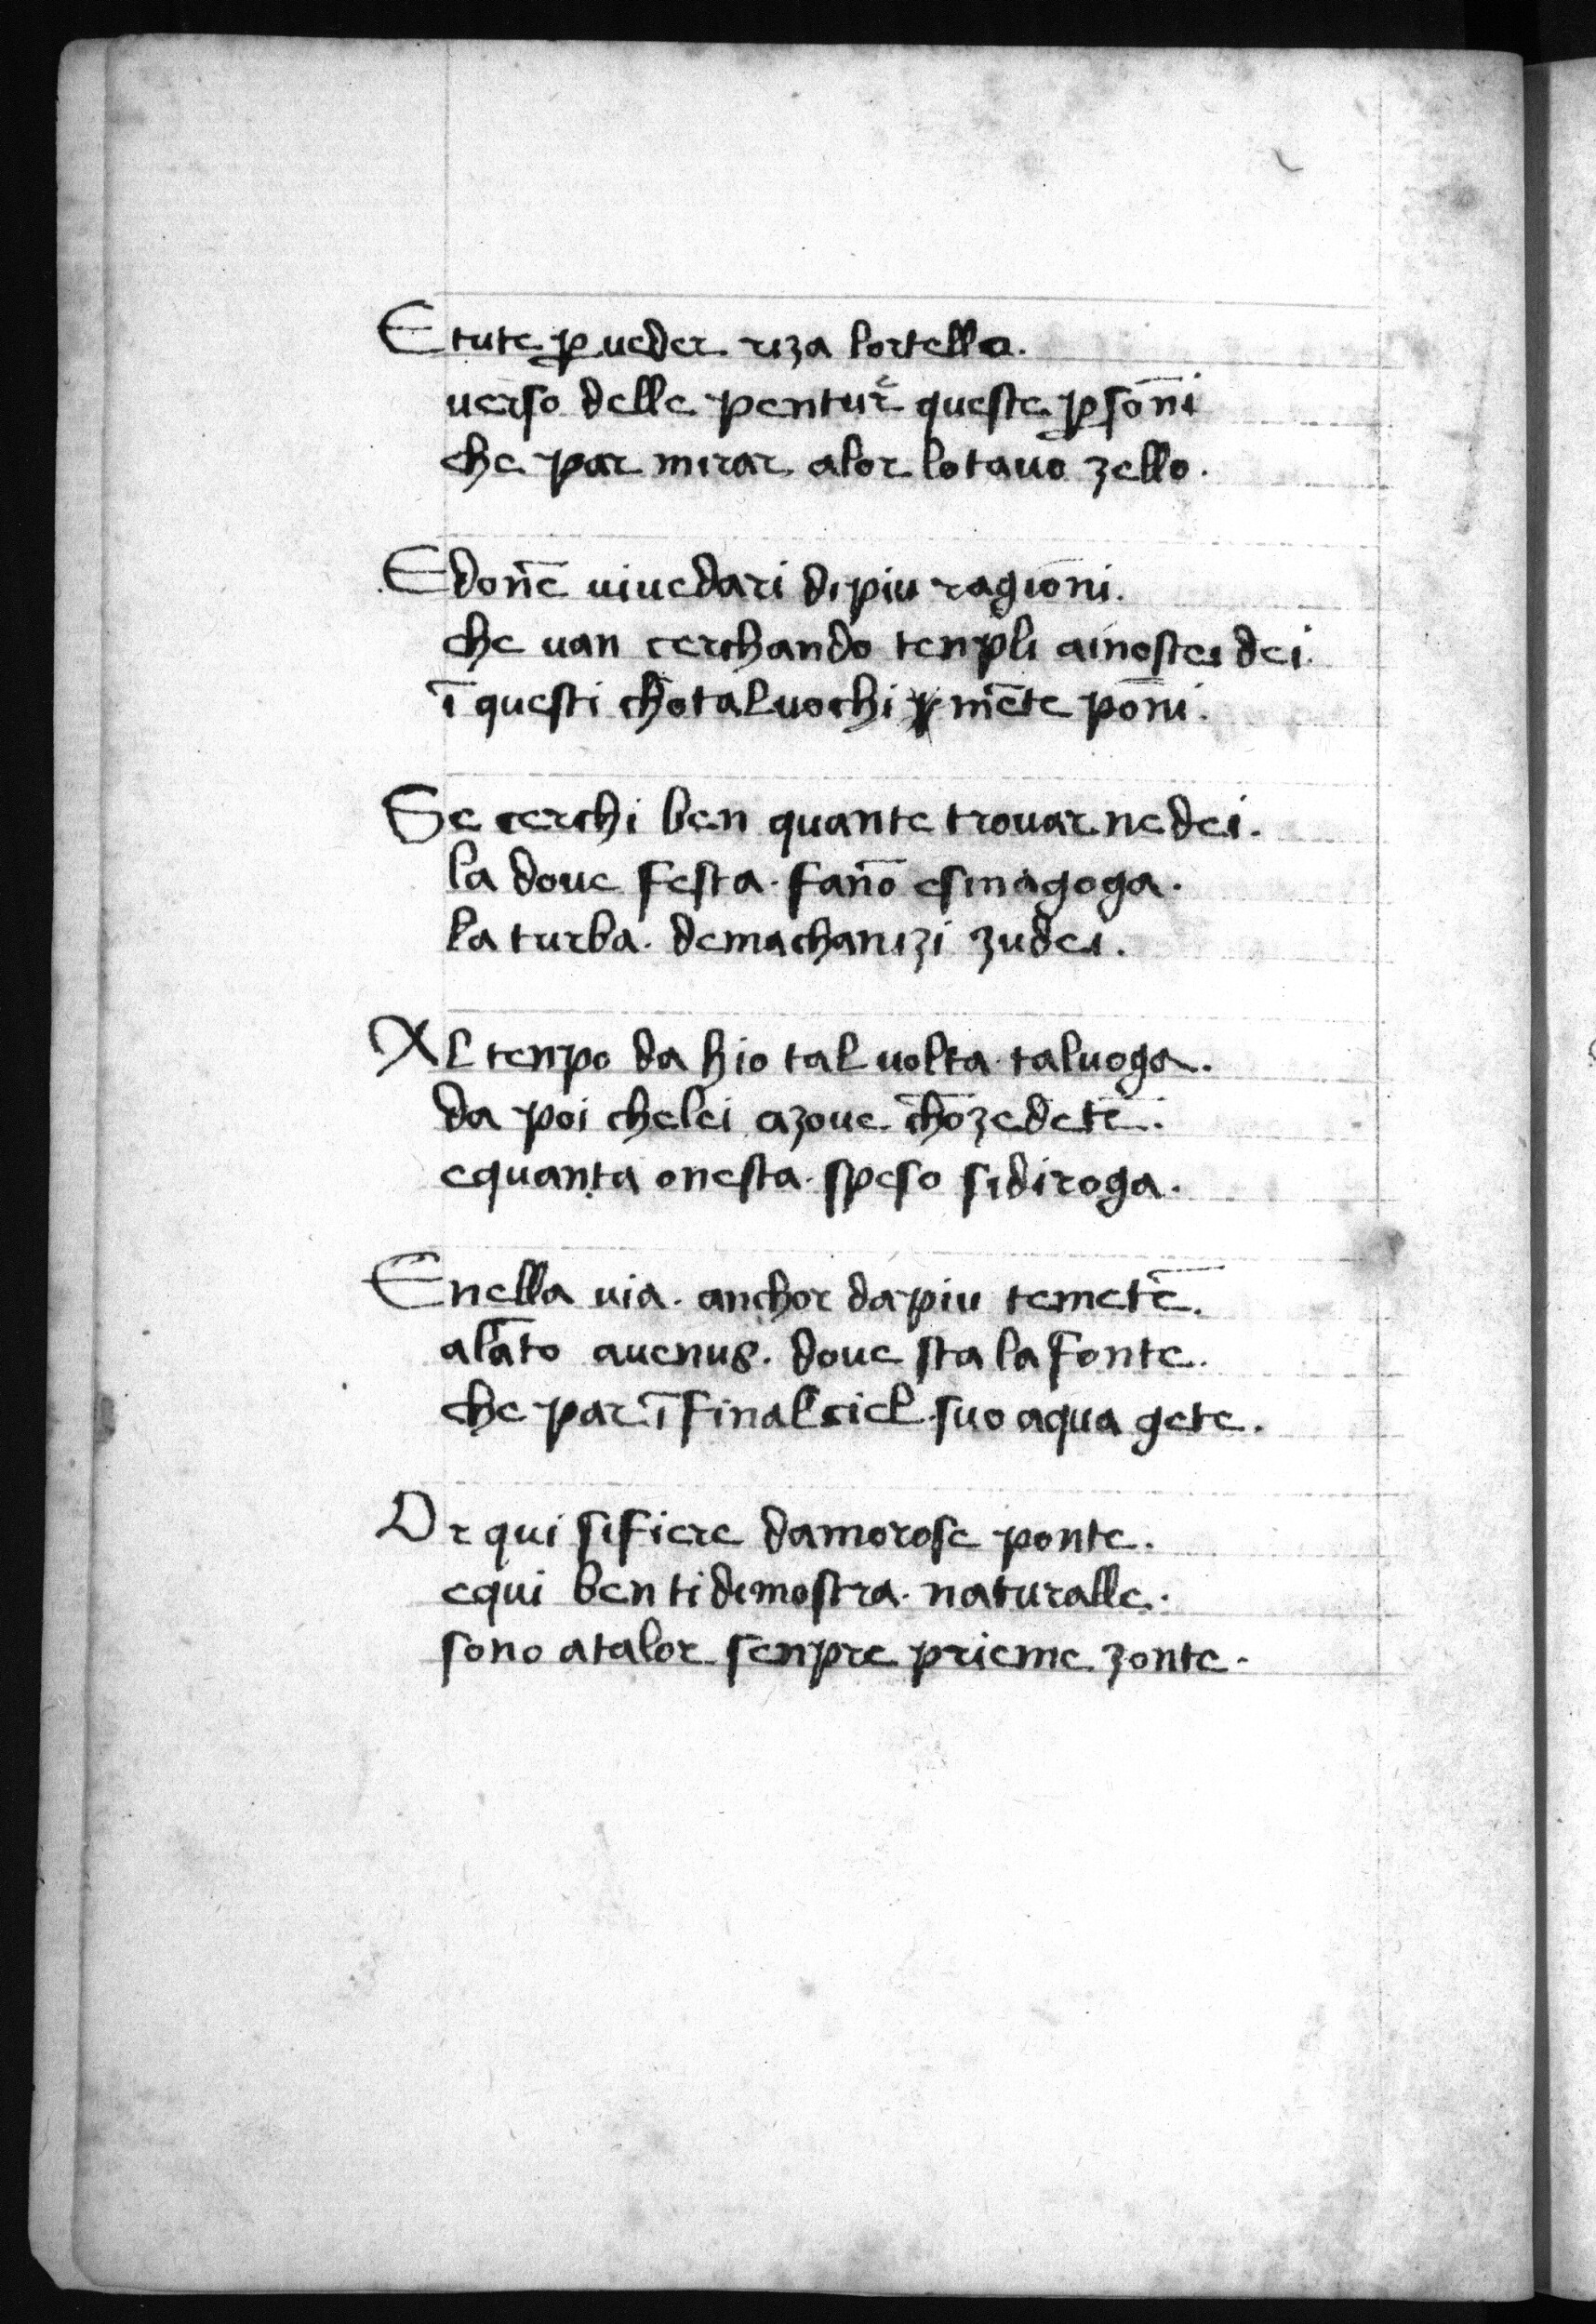 E tute ꝑ ueder riza lortello.
uerso delle pentur̃ queste ꝑsōni
che par mirar alor lotauo zello.
E don̄e uiuedari dipiu ragioni.
che uan cerchando tenpli ainostri dei.
ī questi chotaluochi mēte pōni.
Se cerchi ben quante trouar nedei.
la doue festa. fan̄o esinagoga.
la turba. demachanizi zudei.
Al tenpo da hio tal uolta taluoga.
da poi chelei azoue chōzedetē.
equanta onesta. speso sidiroga.
E nella uia. anchor dapiu temetē.
alāto auenus. doue sta la fonte.
che par ī final ciel suo aqua gete.
Or qui sifiere damorose ponte.
equi ben tidimostra. naturalle.
sono atalor senpre prieme zonte.